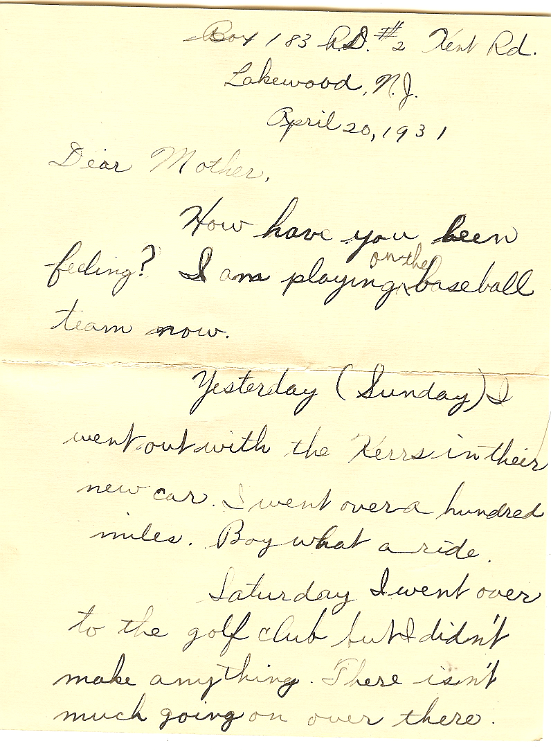 Box 183 R.D. #2 Kent Rd.
Lakewood, N.J.
April 20, 1931
Dear Mother,
How have you been
feeling? I am playing on the baseball
team now.
Yesterday (Sunday) I
went out with the Kerrs in their
new car. I went over a hundred
miles. Boy what a ride.
Saturday I went over
to the golf club but I didn't
make anything. There isn't
much going on over there.